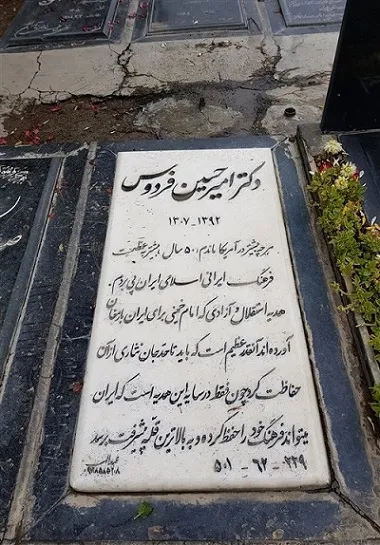 دکتر امیر حسین فردوس
۱۳۰۷ - ۱۳۹۲
هر چه بیشتر در آمریکا ماندم (۵۰ سال) بیشتر به عظمت
فرهنگ ایرانی اسلامی ایران پی بردم.
هدیه استقلال و آزادی که امام خمینی برای ایران بارمغان
آورده اند آنقدر عظیم است که باید تا حد جان نثاری از آن
حفاظت کرد چون فقط در سایه این هدیه است که ایران
میتواند فرهنگ خود را حفظ کرده و به بالاترین قله پیشرفت برسد
۵۰۱ - ۶۲ - ۲۲۹